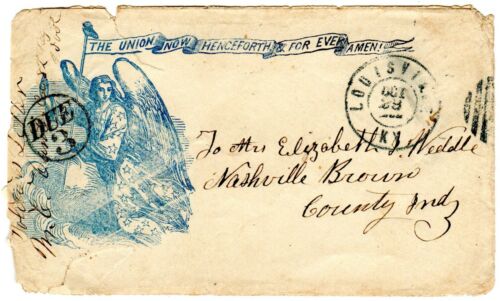 THE UNION, NOW, HENCEFORTH, & FOR EVER, AMEN!
DUE
3
LOUISVILLE
KY
To Mrs Elizabeth J Weddle
Nashville Brown
County Ind